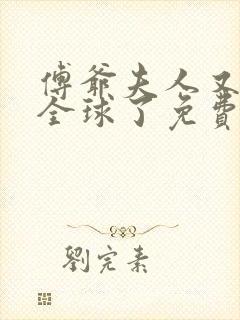 傅爺夫人又
全球了免費
劉完素